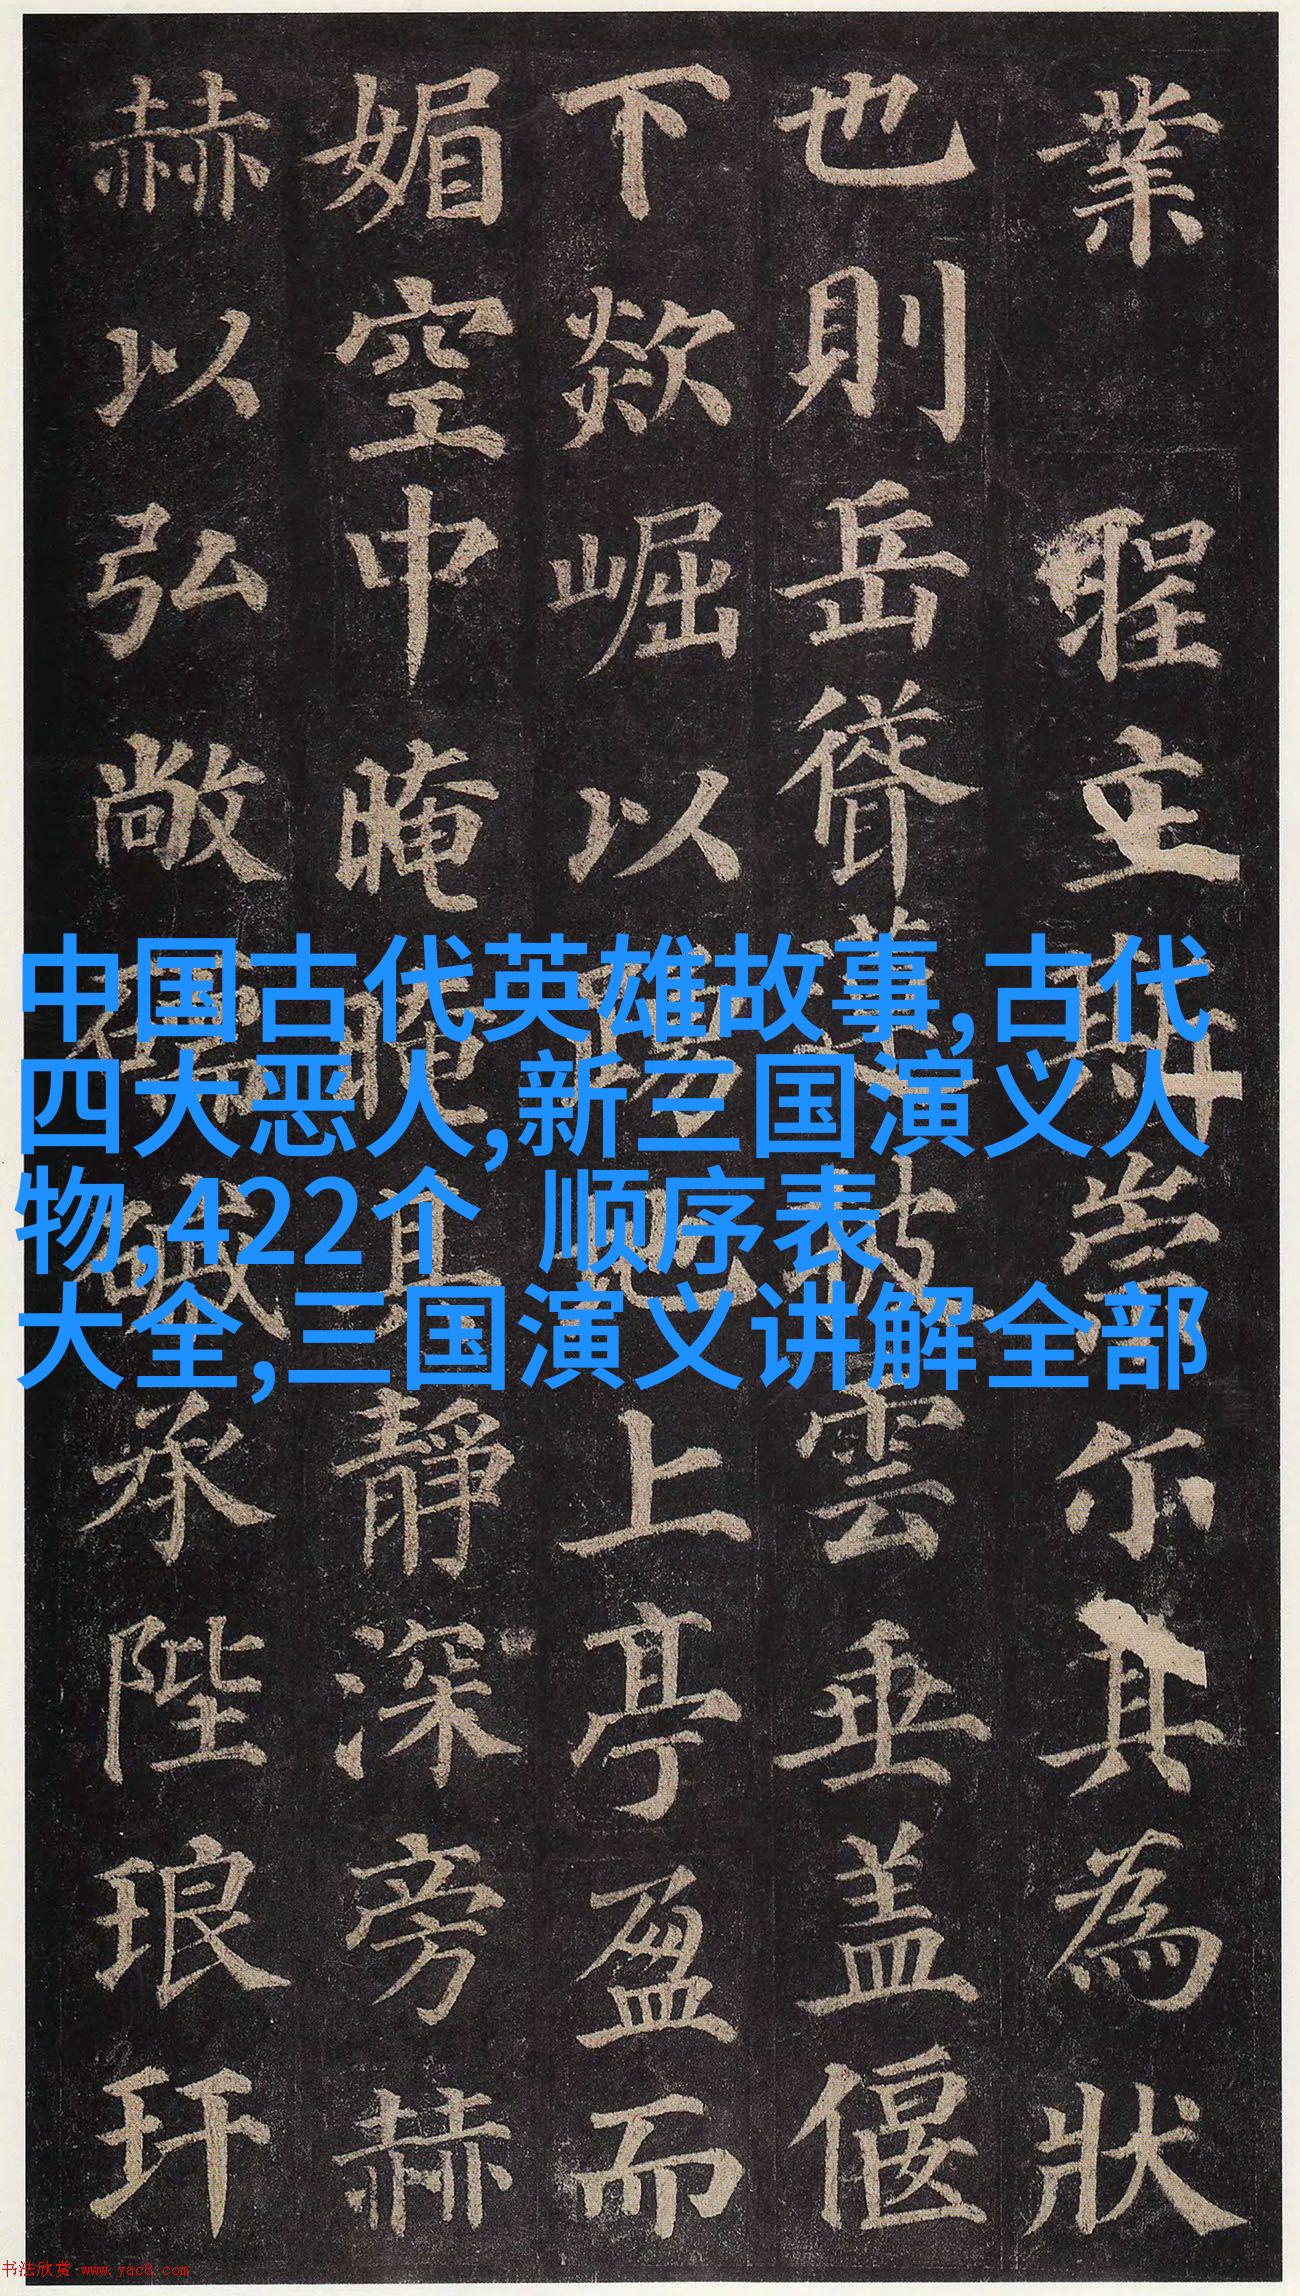 業聖立斯崇尒其為狀
也則岳聳蓬披雲垂盖偃
下欻崛以上亭盈而
媚空中晻其靜深旁赫
赫以弘敞碱承陛琅玕
中国古代英雄故事,古代
四大恶人,新三国演义人
物,422个 顺序表
大全,三国演义讲解全部
书法欣赏 www.yac8.com